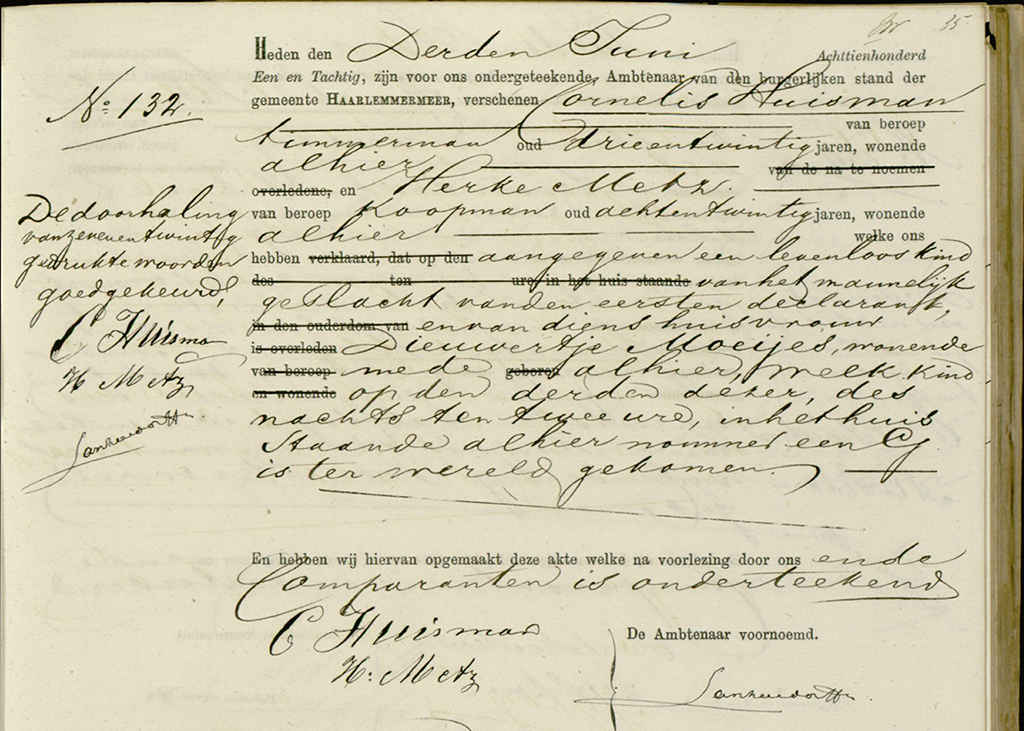 35
Heden den Derden Juni Achttienhonderd
Een en Tachtig, zijn voor ons ondergeteekende, Ambtenaar van den burgerlijken stand der
gemeente HAARLEMMERMEER, verschenen Cornelis Huisman
No. 132.
van beroep
timmerman oud drieentwintig jaren, wonende
alhier van de na te noemen
overledene, en Herke Metz.
van beroep Koopman oud achtentwintig jaren, wonende
alhier welke ons
hebben verklaard, dat op den aangegeven een levenloos kind
des ten ure, in het huis staande van het mannelijk
geslacht van den eersten declarant,
in den ouderdom van en van diens huisvrouw
is overleden Dieuwertje Moeijes, wonende
van beroep mede geboren alhier, welk kind
en wonende op den derden dezer, des
nachts ten twee ure, in het huis
staande alhier nommer een
is ter wereld gekomen.
De doorhaling
van zevenentwintig
gedrukte woorden
goedgekeurd,
C Huisman
H Metz
En hebben wij hiervan opgemaakt deze akte welke na voorlezing door ons en de
Comparanten is onderteekend
C Huisman
De Ambtenaar voornoemd.
H: Metz